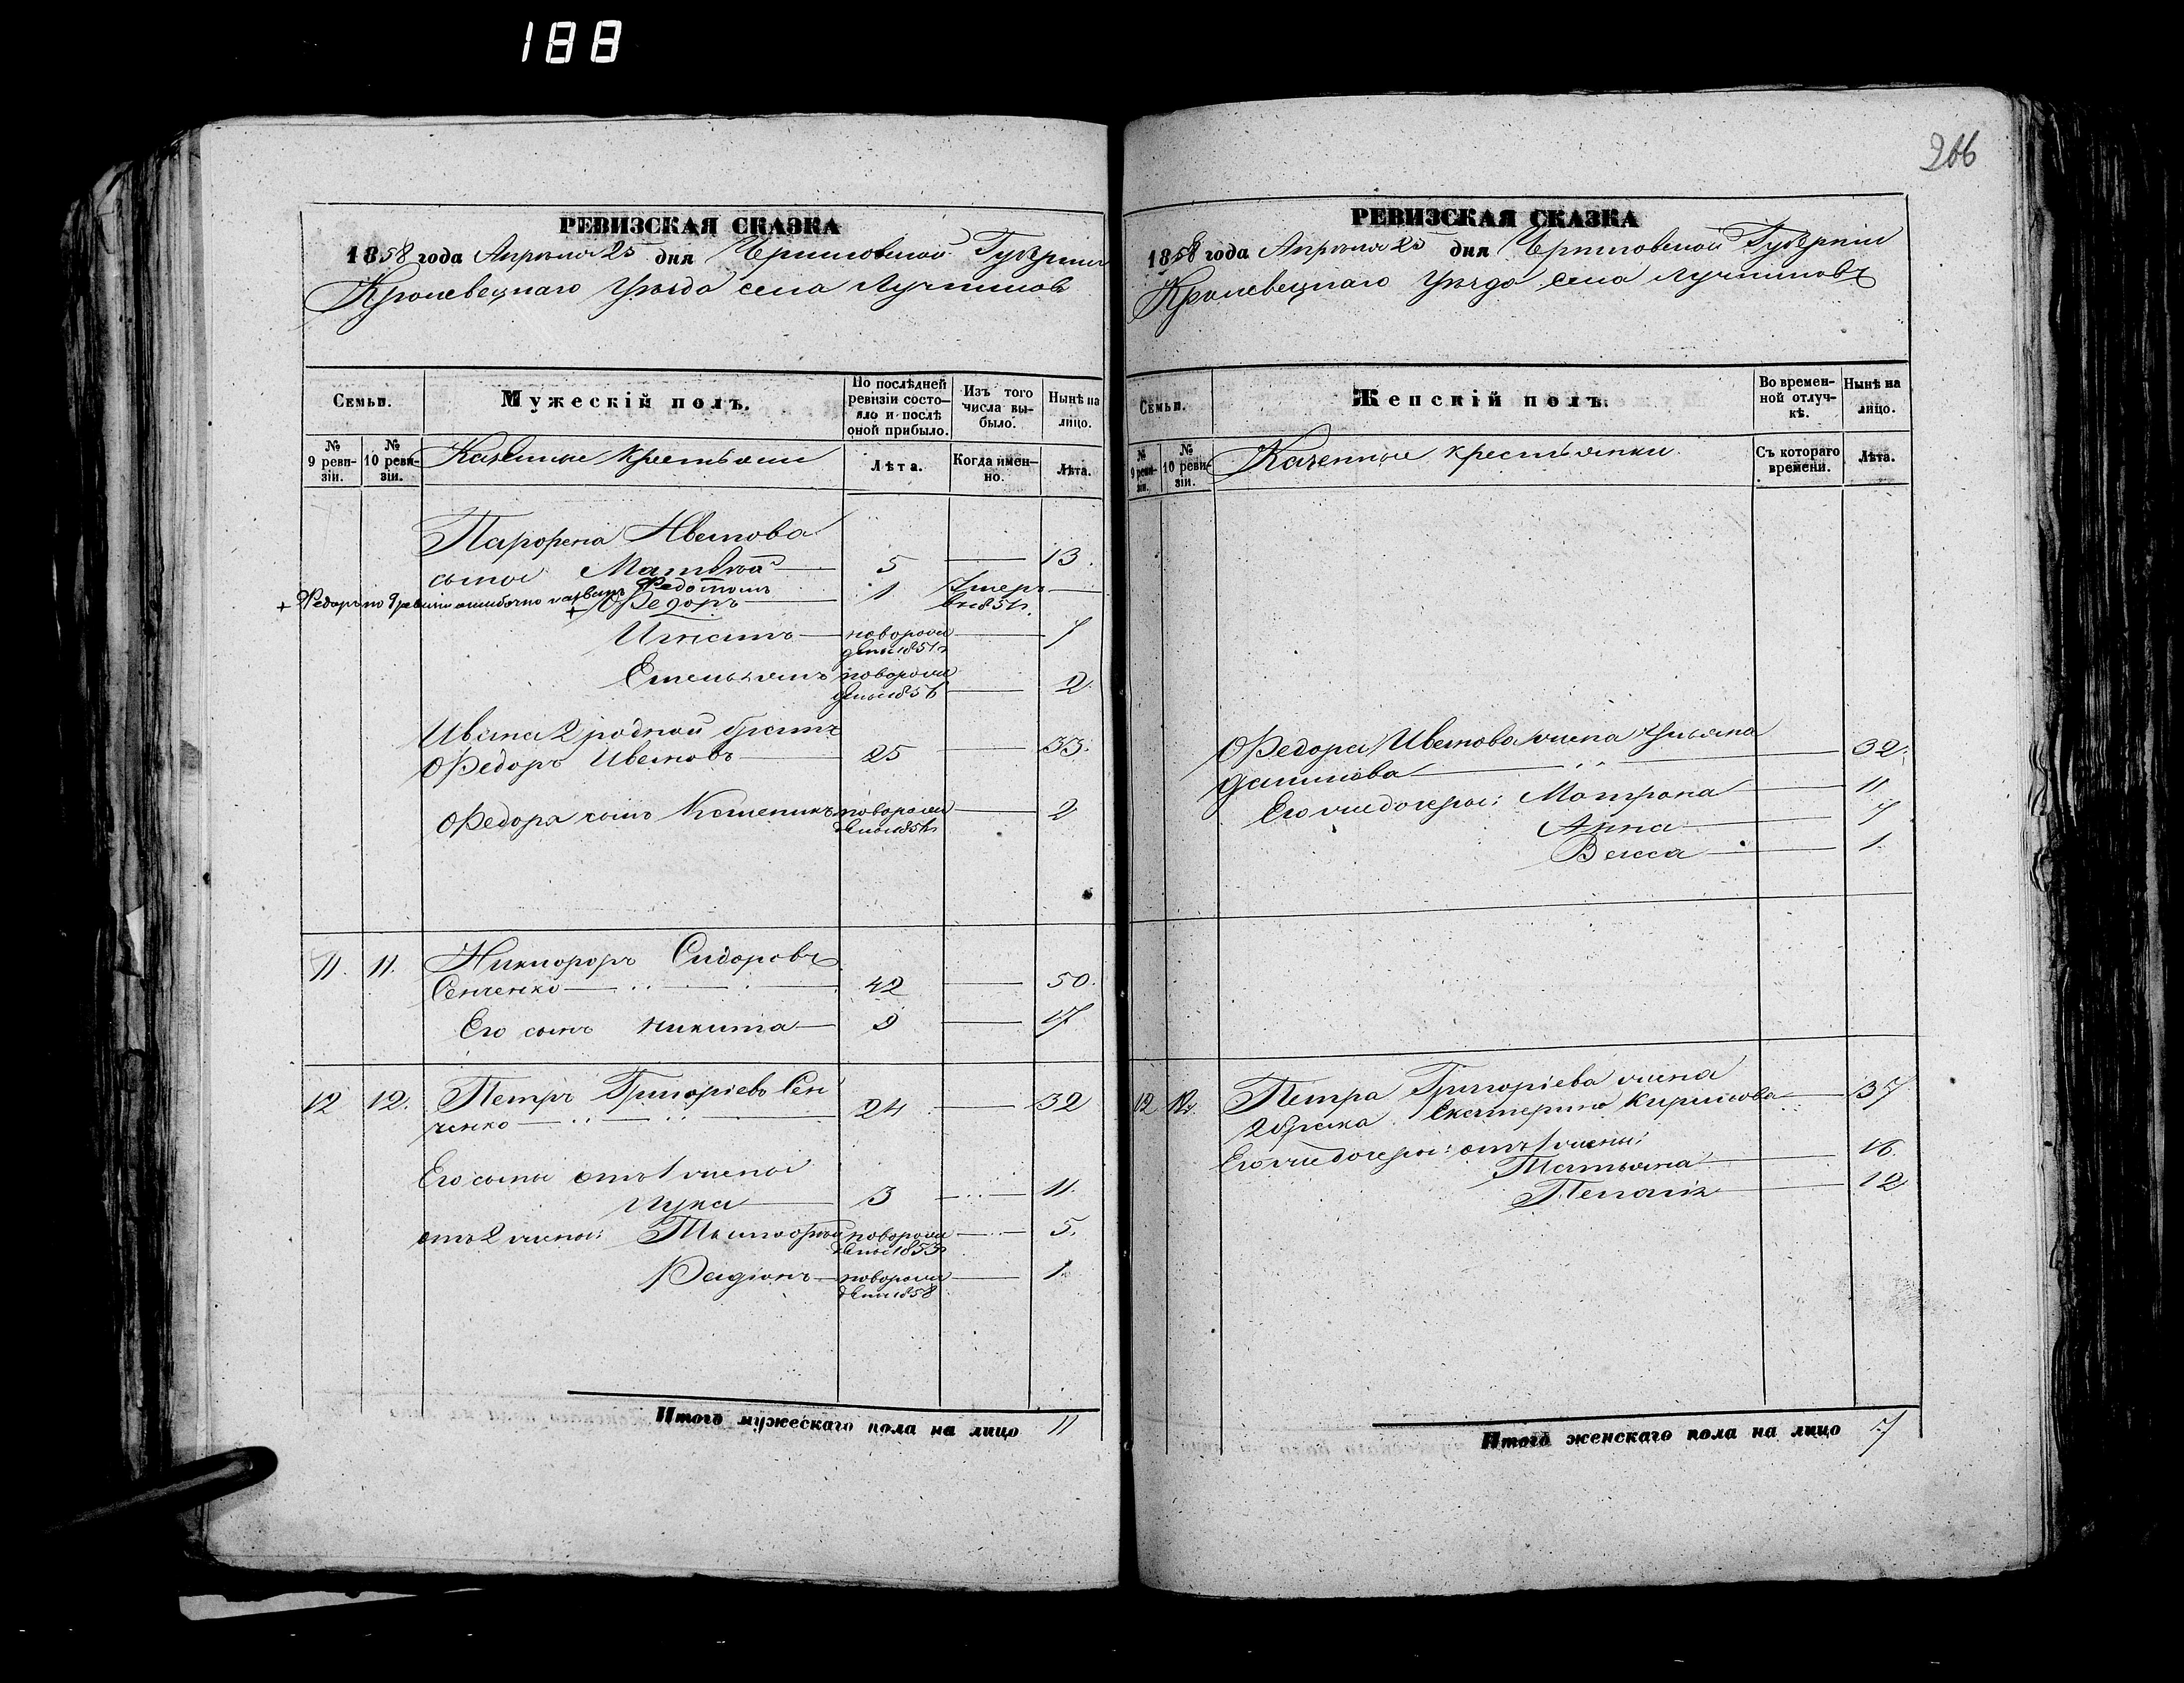 188
266
РЕВИЗСКАЯ СКАЗКА
1858 года Апреля 25 дня Черниговской Губернии
Кролевецкаго Уѣзда села Лучников
Семьи.
Мужескій полъ.
По послѣдней ревизіи состо-
яло и послѣ
оной прибыло.
Изъ того
числа вы-
было.
Нынѣ на
лицо.
№
9 реви-
зіи.
№
10 реви-
зіи.
Казенные крестьяне
Лѣта.
Когда имен-
но.
Лѣта.
Парфена Иванова
сыны Матвѣй 5 13
+ Федоръ по 9 ревизіи ошибочно названъ Федотомъ
+ Федоръ 1 Умеръ
в 1851г
Игнатъ новорож 7
денъ 1851г
Емельянъ новорож 2
денъ 1856
Ивана 2 родной братъ
Федоръ Ивановъ 25 33.
Федора сынъ новорож 2
денъ 1856г
11. 11. Никифоръ Сидоровъ
Сенченко 42 50.
Его сынъ Никита 9 17
12 12. Петръ Григоріевъ Сен
ченко 24 32
Его сыны отъ 1 жены
Лука 3 11.
отъ 2 жены: Тимофей новорож 5.
денъ 1853г
Радіонъ новорож 1.
денъ 1858
Итого мужескаго пола на лицо 11
РЕВИЗСКАЯ СКАЗКА
1858 года Апреля 25 дня Черниговской Губерніи
Кролевецкаго Уѣзда села Лучниковъ
Семьи.
Женскій полъ.
Во времен-
ной отлуч-
кѣ.
Нынѣ на
лицо.
№
9 реви-
зіи.
№
10 реви-
зіи.
Казенные крестьянки
Съ котораго
времени.
Лѣта.
Федора Иванова жена Ульяна
Данилова 32.
Его же дочеры: Матрона 11
Анна 7
Васса 1
12 12. Петра Григоріева жена
2 брака Екатерина Кирилова 37
Его же дочеры: отъ 1 жены:
Татьяна 16.
Пелагія 12
Итого женскаго пола на лицо 7